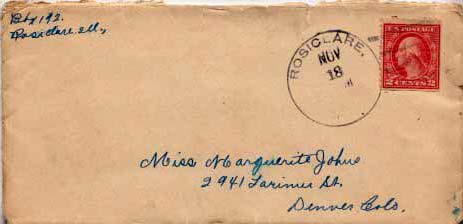 Box 192.
Rosiclare, Ill,
ROSICLARE,
NOV
18
M
U.S. POSTAGE
2 CENTS 2
Miss Marguerite Johns
2941 Larimer St.
Denver Colo.